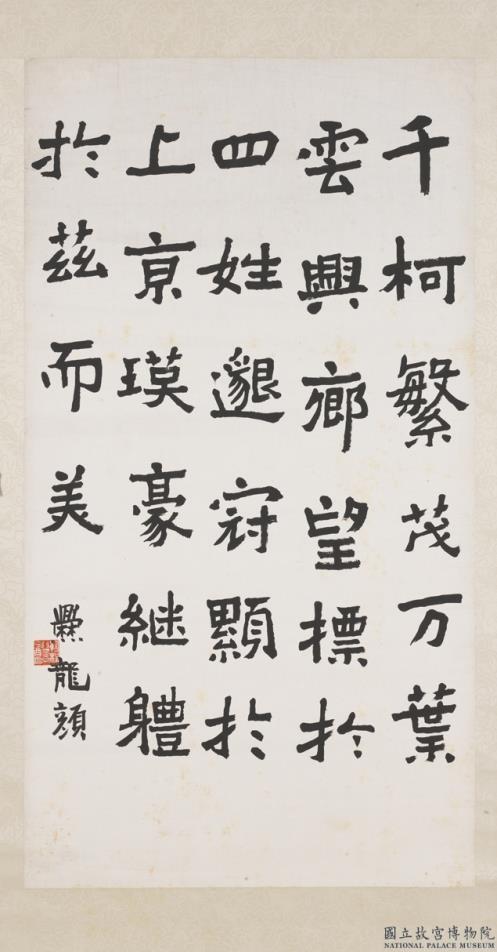 千柯繁茂万葉
雲興鄉望標於
四姓邈冠顯於
上京瑛豪継軆
於茲而美
爨龍顏
國立故宮博物院
NATIONAL PALACE MUSEUM